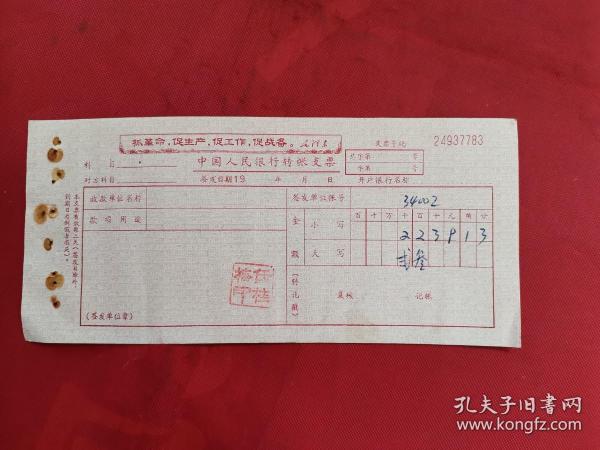 抓革命,促生产,促工作,促战备。毛泽东
24937783
支票字轨
科目
中国人民银行转帐支票
总字第 号
字第 号
对方科目
签发日期19 年 月 日
开户银行名称
本支票有效期三天(签发日除外,到期日为例假者顺延)。
收款单位名称
签发单位帐号 34002
款项用途
金额 小写 百 十 万 千 百 十 元 角 分
2 2 3 9 1 3
大写 贰 叁
(转讫戳)
复核 记帐
(签发单位章)
孔夫子旧书网
www.kongfz.com